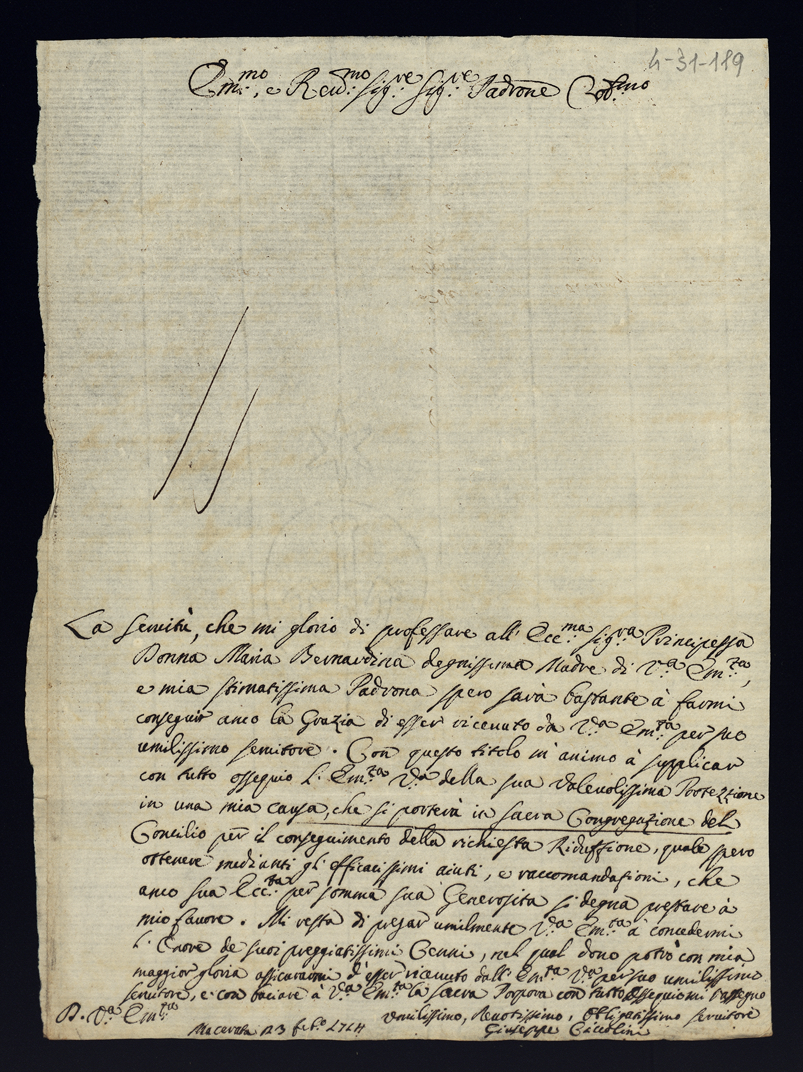 4-31-119
Em.mo, e Reu.mo Sig.re Sig.re Padrone Cob.mo
La seruitù, che mi glorio di professare all' Ecc.ma Sig.ra Principessa
Donna Maria Bernardina degnissima Madre di V.a Em.za,
e mia stimatissima Padrona spero sarà bastante à farmi
conseguir anco la Grazia di esser riceuuto da V.a Em.za per suo
umilissimo seruitore. Con questo titolo m'animo à supplicar
con tutto ossequio l'Em.za V.a della sua Valeuolissima Protezzione
in una mia causa, che si porterà in sacra Congregazione del
Concilio per il conseguimento della richiesta Riduzzione, quale spero
ottenere medianti gl'efficacissimi aiuti, e raccomandazioni, che
anco sua Ecc.za per somma sua Generosità si degna prestare à
mio fauore. Mi resta di pregar umilmente V.a Em.za à concedermi
l'Onore de suoi preggiatissimi Cenni, nel qual dono potrò con mia
maggior gloria assicurarmi d'esser riceuuto dall'Em.za V.a per suo umilissimo
seruitore, e con baciare à V.a Em.za la sacra Porpora con tutto ossequio mi rassegno
D. V.a Em.za
Macerata 23 feb.o 1714
Vmilissimo, deuotissimo, obligatissimo seruitore
Giuseppe Ciccolini